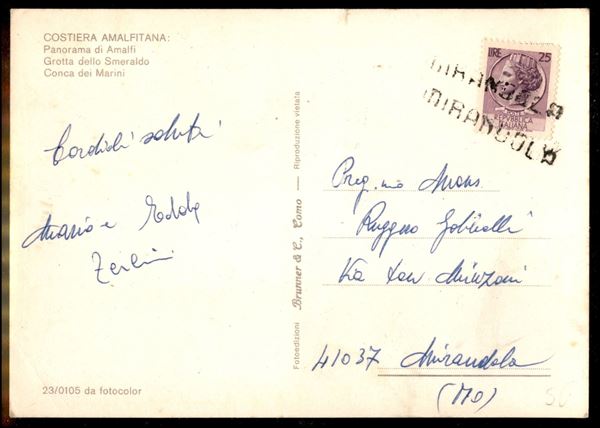 COSTIERA AMALFITANA:
Panorama di Amalfi
Grotta dello Smeraldo
Conca dei Marini
Cordiali saluti
Mario e Edda
Zerbini
23/0105 da fotocolor
Fotoedizioni Brunner & C., Como — Riproduzione vietata
LIRE 25
REPUBBLICA
ITALIANA
MIRANDOLA
MIRANDOLA
Preg.mo Mons
Ruggero
Via Don Minzoni
41037 Mirandola
(MO)